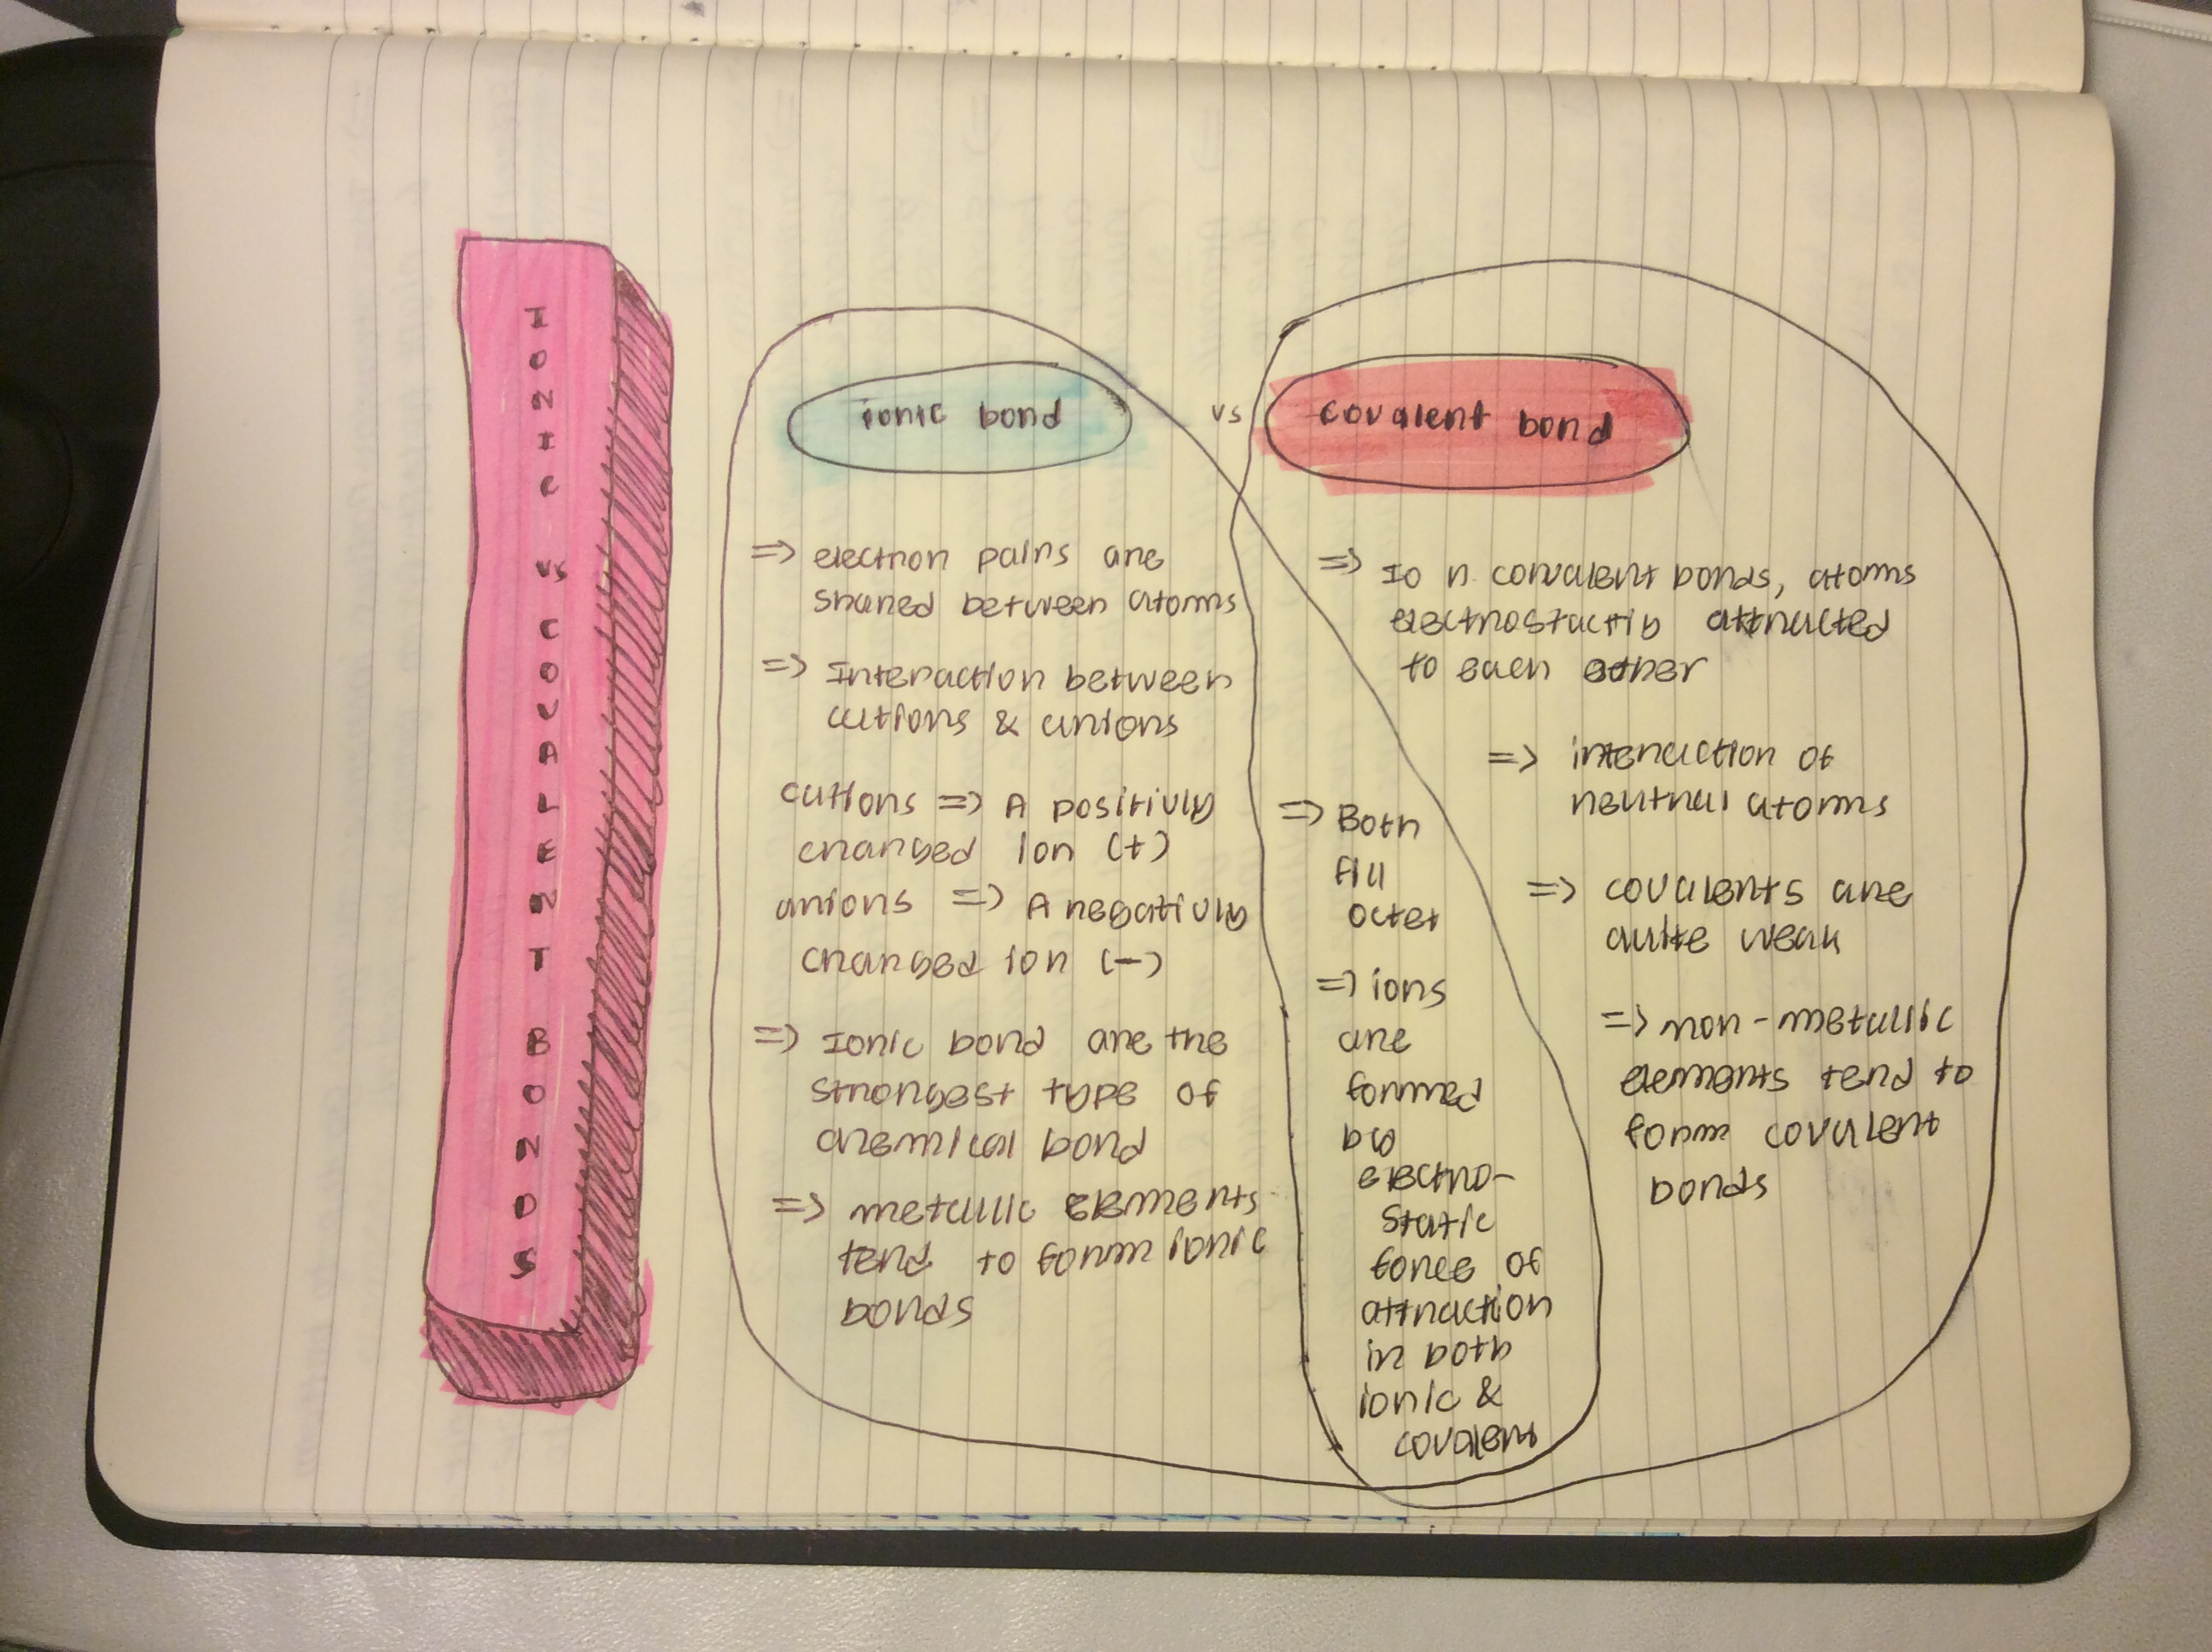 IONIC vs COVALENT BONDS
ionic bond
vs
covalent bond
=> electron pairs are
shared between atoms
=> Interaction between
cations & anions
cations => A positivly
charged ion (+)
anions => A negativly
charged ion (-)
=> Ionic bond are the
strongest type of
chemical bond
=> metallic elements
tend to form ionic
bonds
=> Both
fill
octet
=> ions
are
formed
by
electro-
static
force of
attraction
in both
ionic &
covalent
=> Io n covalent bonds, atoms
attracted
to each other
=> interaction of
neutral atoms
=> covalents are
quite weak
=> non-metallic
elements tend to
form covalent
bonds